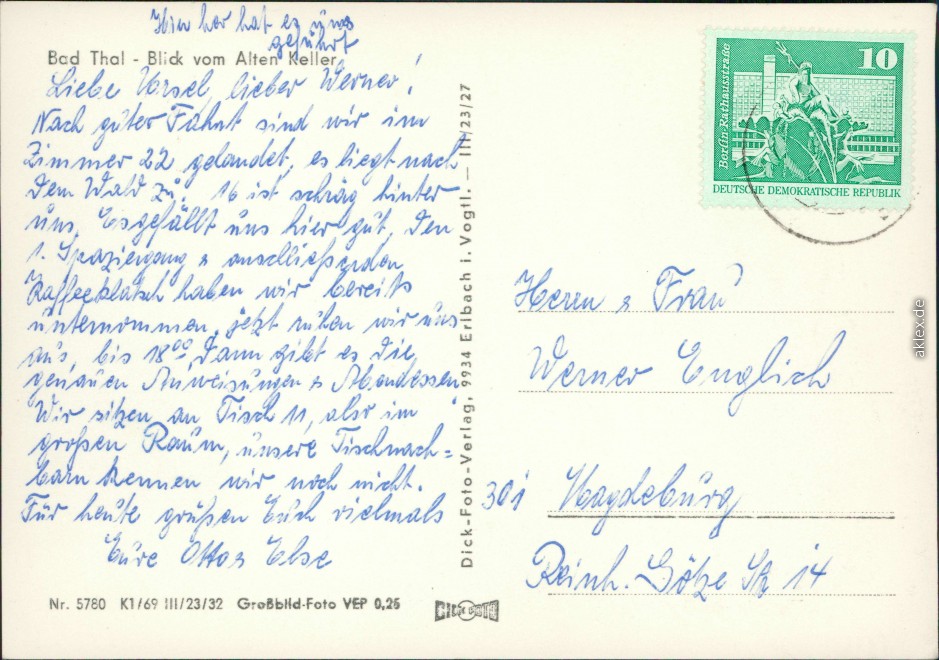 Hier her hat es uns
geführt
Bad Thal - Blick vom Alten Keller
Liebe Ursel, lieber Werner!
Nach guter Fahrt sind wir im
Zimmer 22 gelandet, es liegt nach
dem Wald zu. 16 ist schräg hinter
uns. Es gefällt uns hier gut. Den
1. Spaziergang & anschließenden
Kaffeeklatsch haben wir bereits
unternommen, jetzt ruhen wir uns
aus, bis 18⁰⁰. Dann gibt es die
genauen Anweisungen & Abendessen
Wir sitzen an Tisch 11, also im
großen Raum, unsere Tischnach=
barn kennen wir noch nicht.
Für heute grüßen Euch vielmals
Eure Otto & Else
Nr. 5780 K1/69 III/23/32 Großbild-Foto VEP 0,25
Dick-Foto-Verlag, 9934 Erlbach i. Vogtl. — III/23/27
DICK FOTO
Berlin-Rathausstraße
10
DEUTSCHE DEMOKRATISCHE REPUBLIK
Herrn & Frau
Werner Englich
301 Magdeburg
Reinh. Götze Str 14
aklex.de